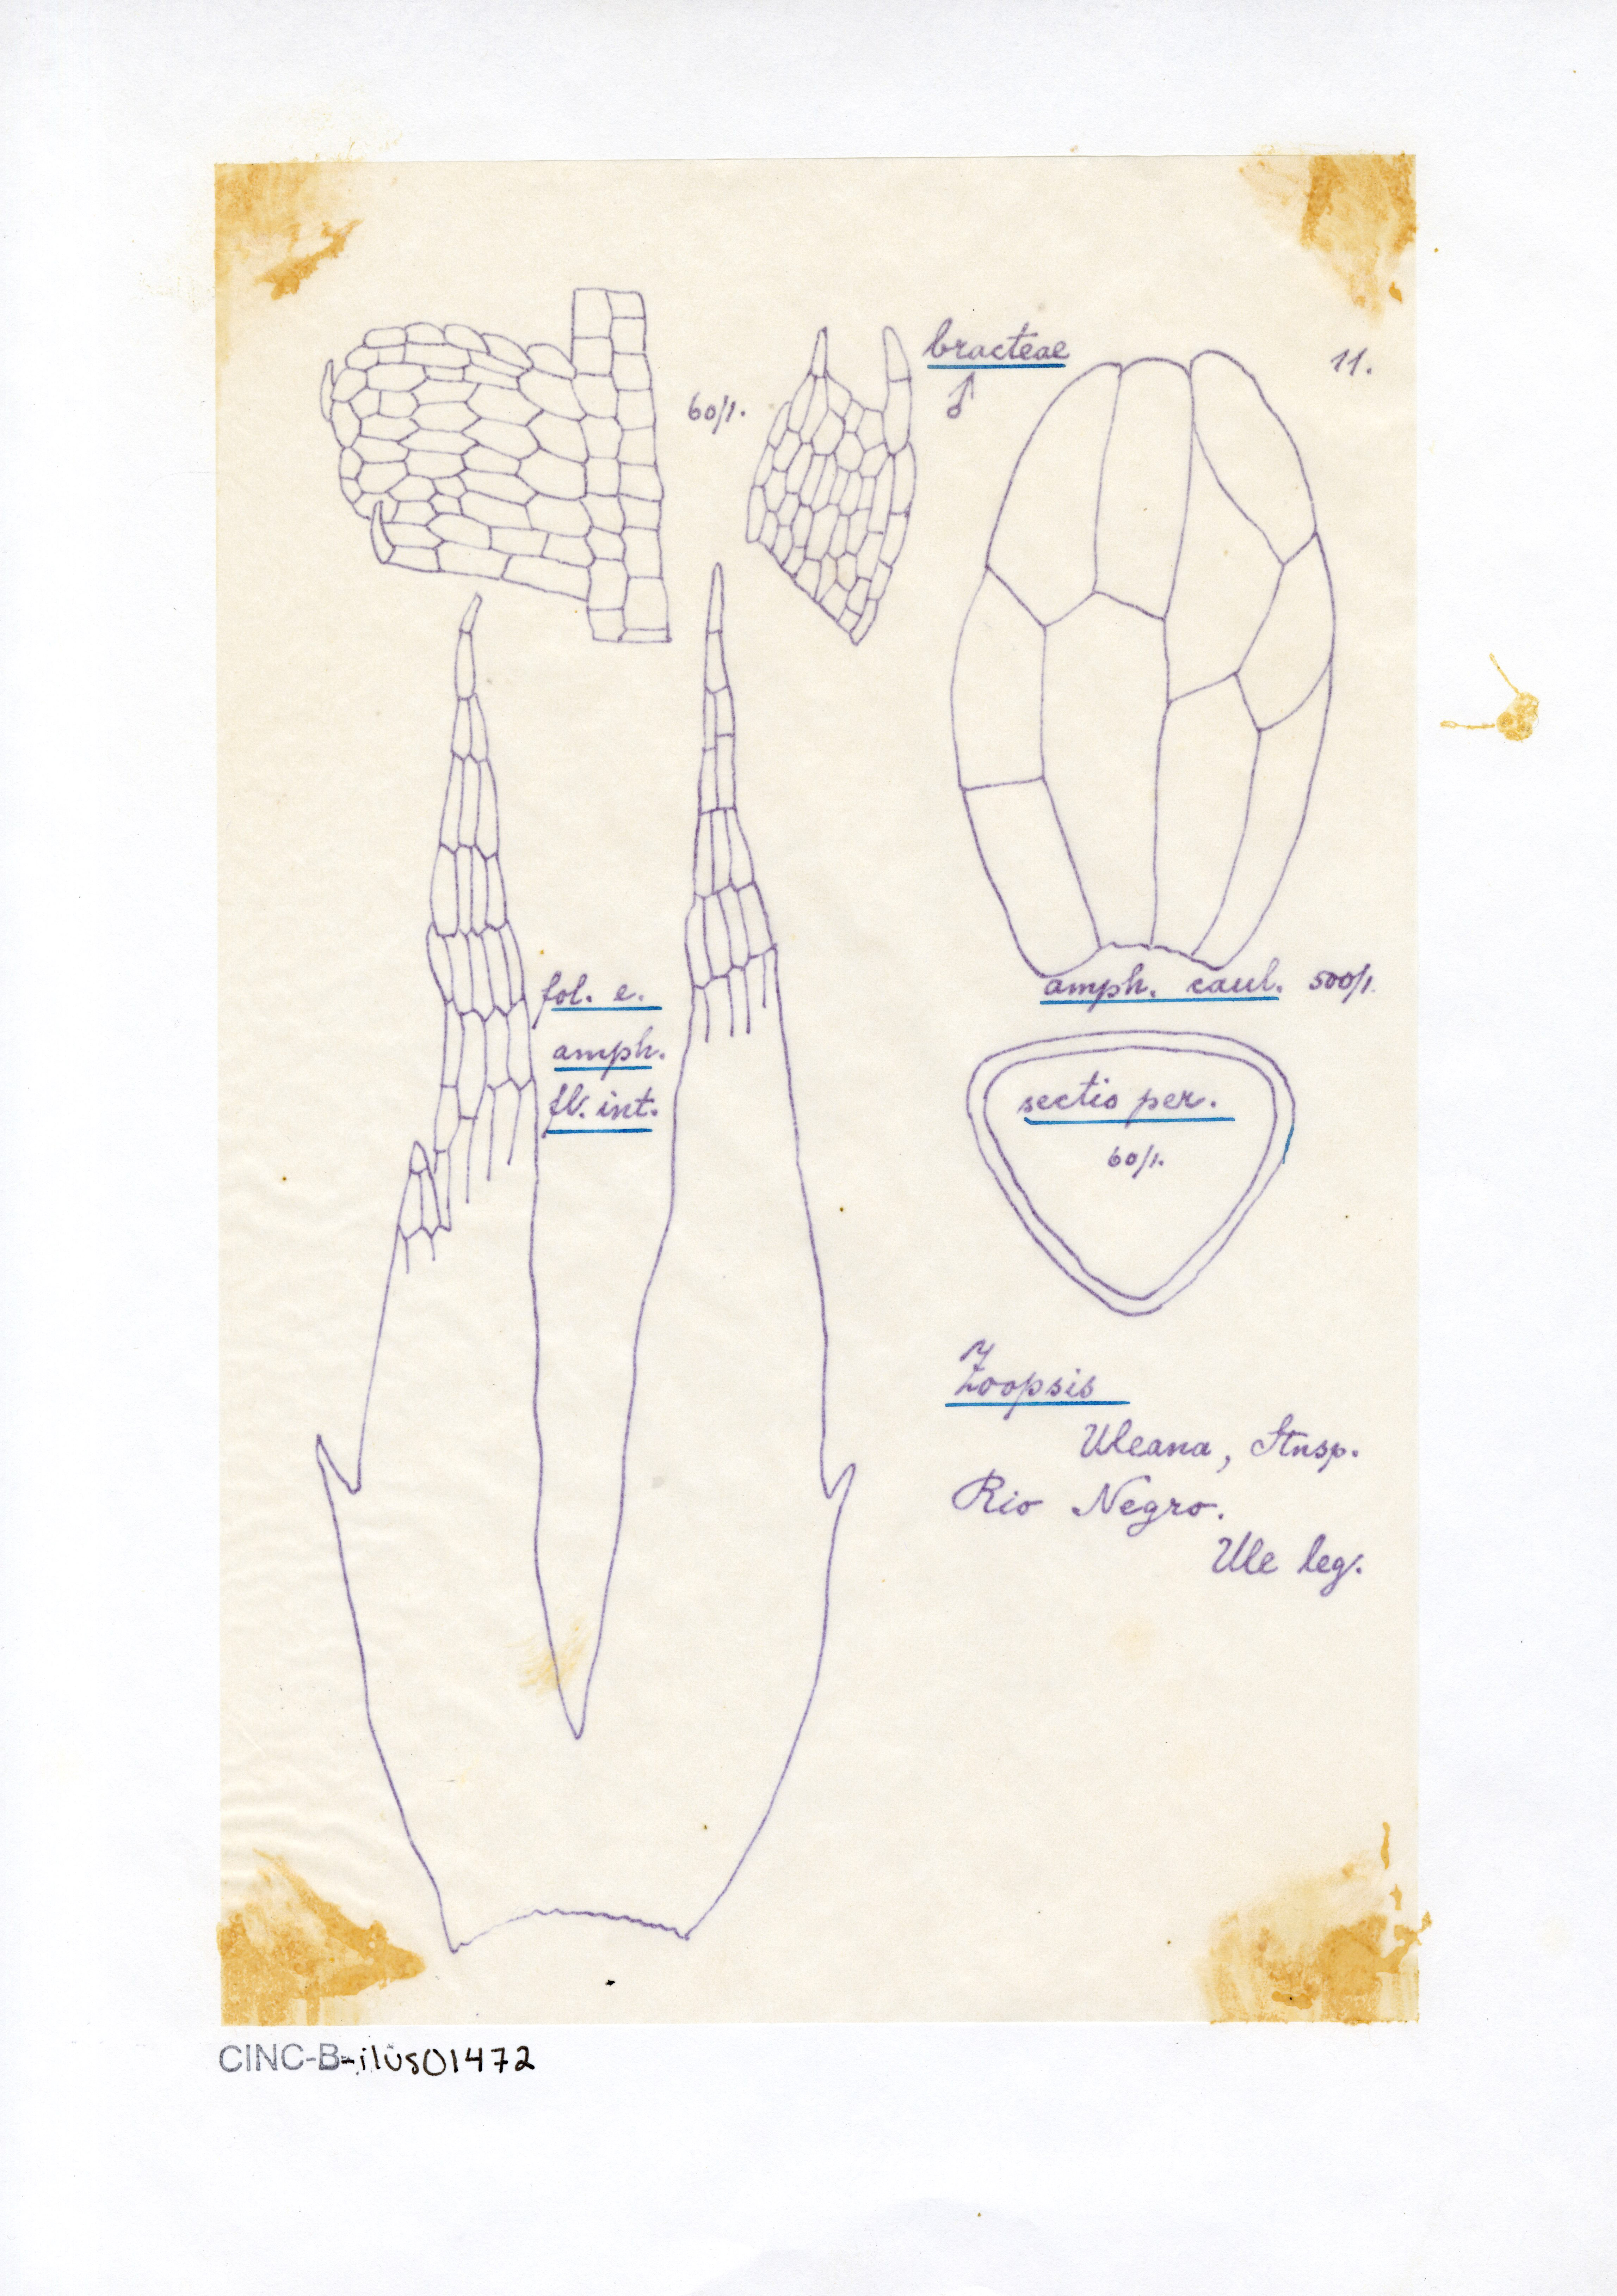 bracteae
♂
11.
60/1.
fol. e.
amph.
fl. int.
amph. caul. 500/1.
sectio per.
60/1.
Zoopsis
Uleana, Stnsp.
Rio Negro.
Ule leg.
CINC-B-ilus01472